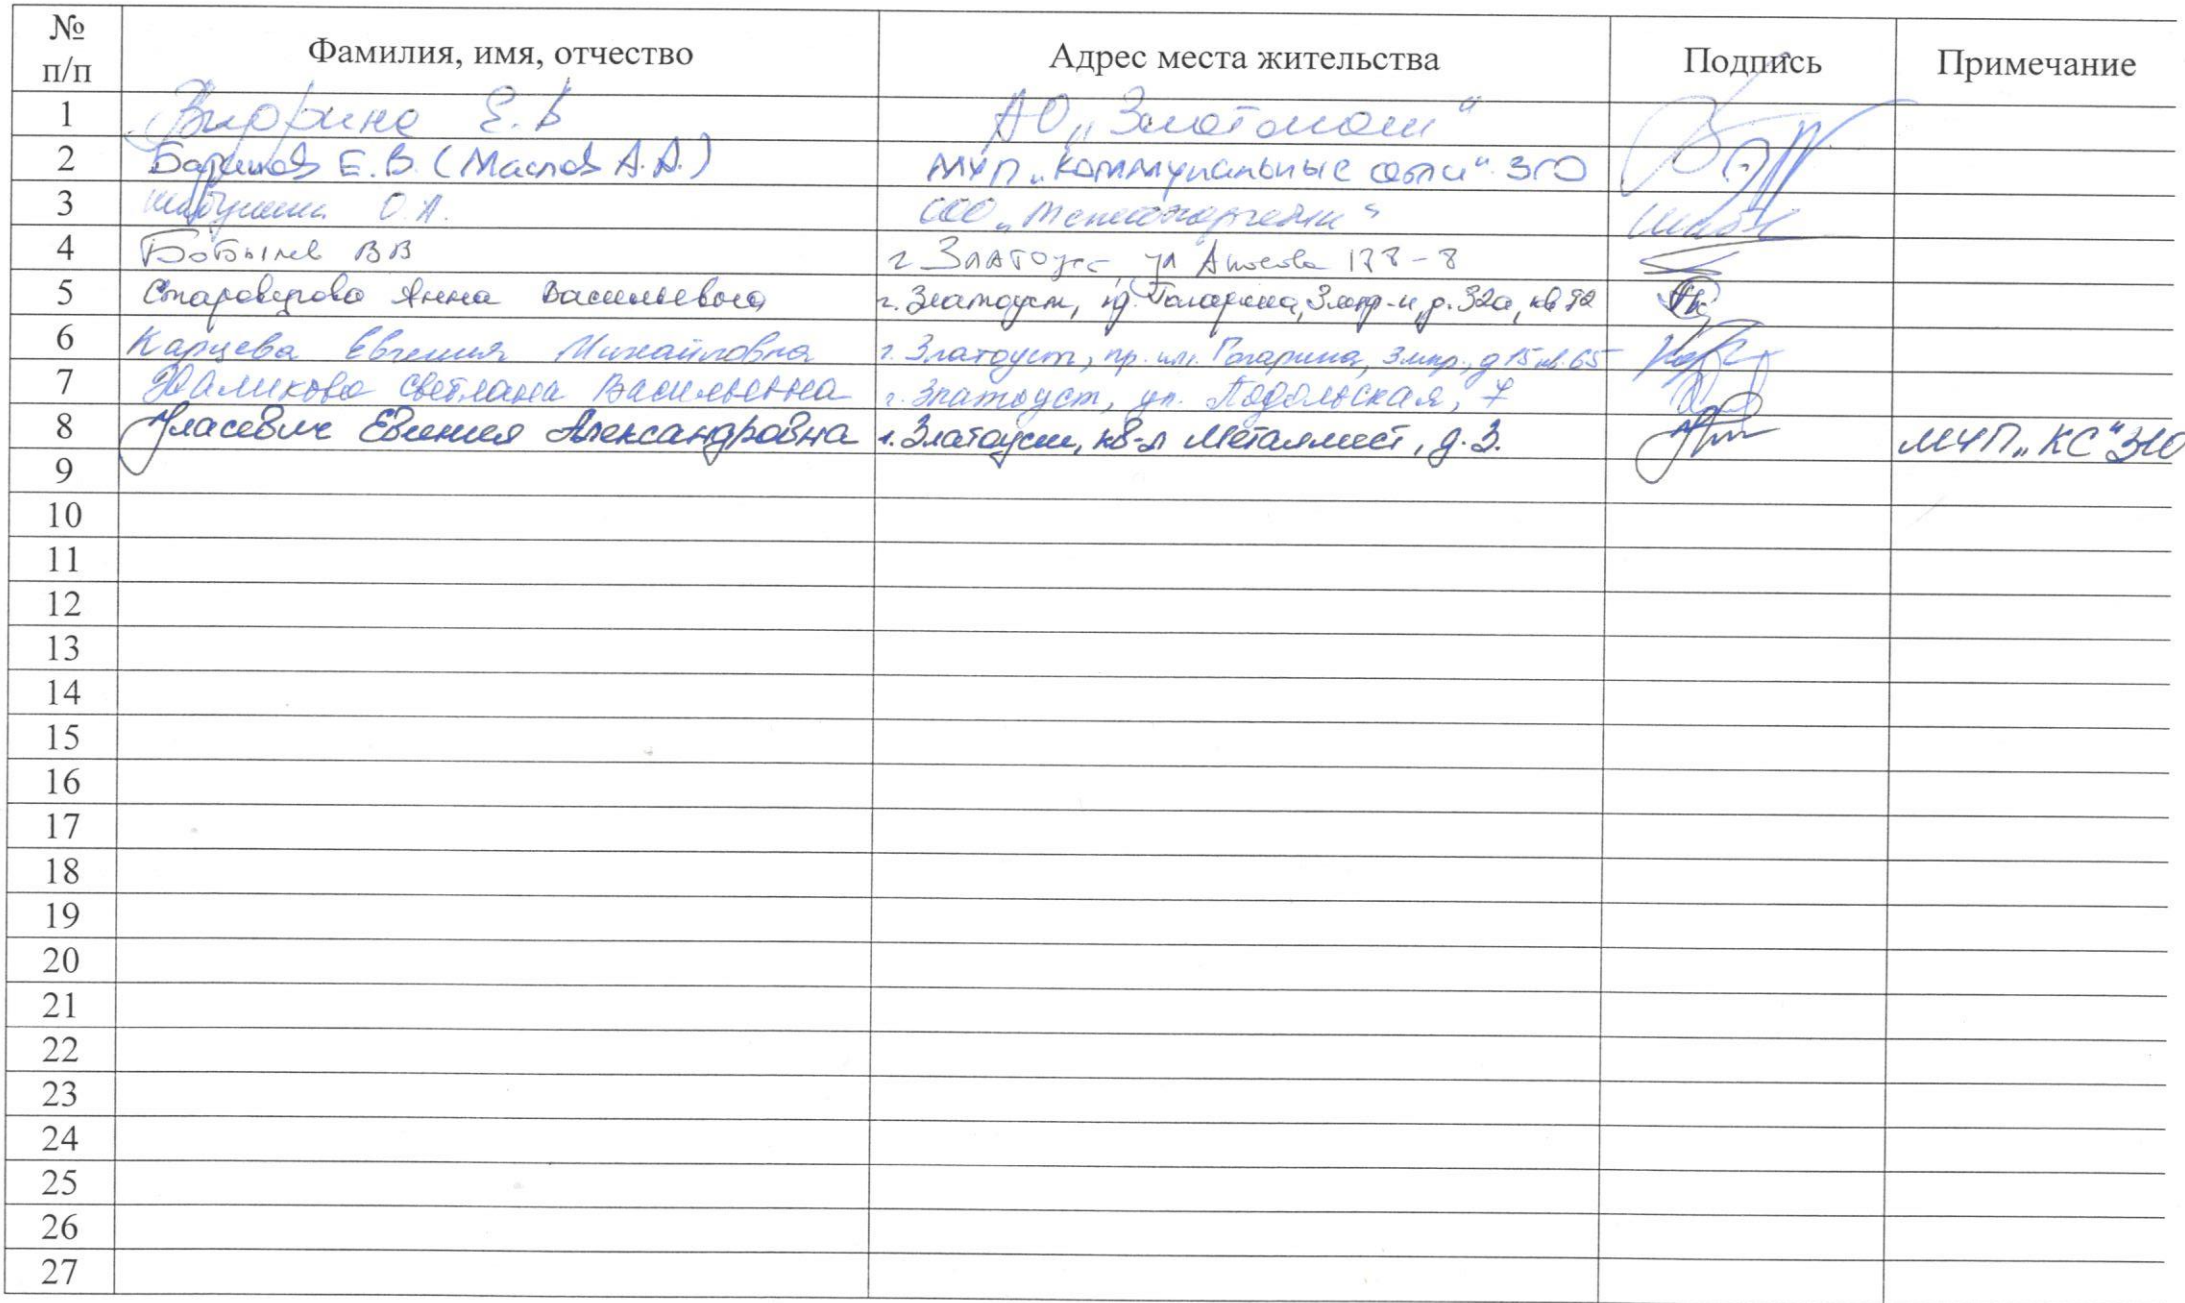 № п/п Фамилия, имя, отчество Адрес места жительства Подпись Примечание
1 Е.В АО „Златмаш“
2 Баринов Е.В. (Маслов А.А.) МУП „Коммунальные сети“ ЗГО
3 О.А. ООО
4 Бобылев ВВ г Златоуст, ул Аносова 178-8
5 Староверова Анна Васильевна г. Златоуст, Гагарина, 3 мкр-н, д. 32а, кв 92
6 Карцева Евгения Михайловна г. Златоуст, пр. им. Гагарина, 3 мкр., д 15 кв. 65
7 Светлана Васильевна г. Златоуст, ул. Подольская, 7
8 Уласевич Евгения Александровна г. Златоуст, кв-л Металлист, д. 3. МУП „КС“ ЗГО
9
10
11
12
13
14
15
16
17
18
19
20
21
22
23
24
25
26
27